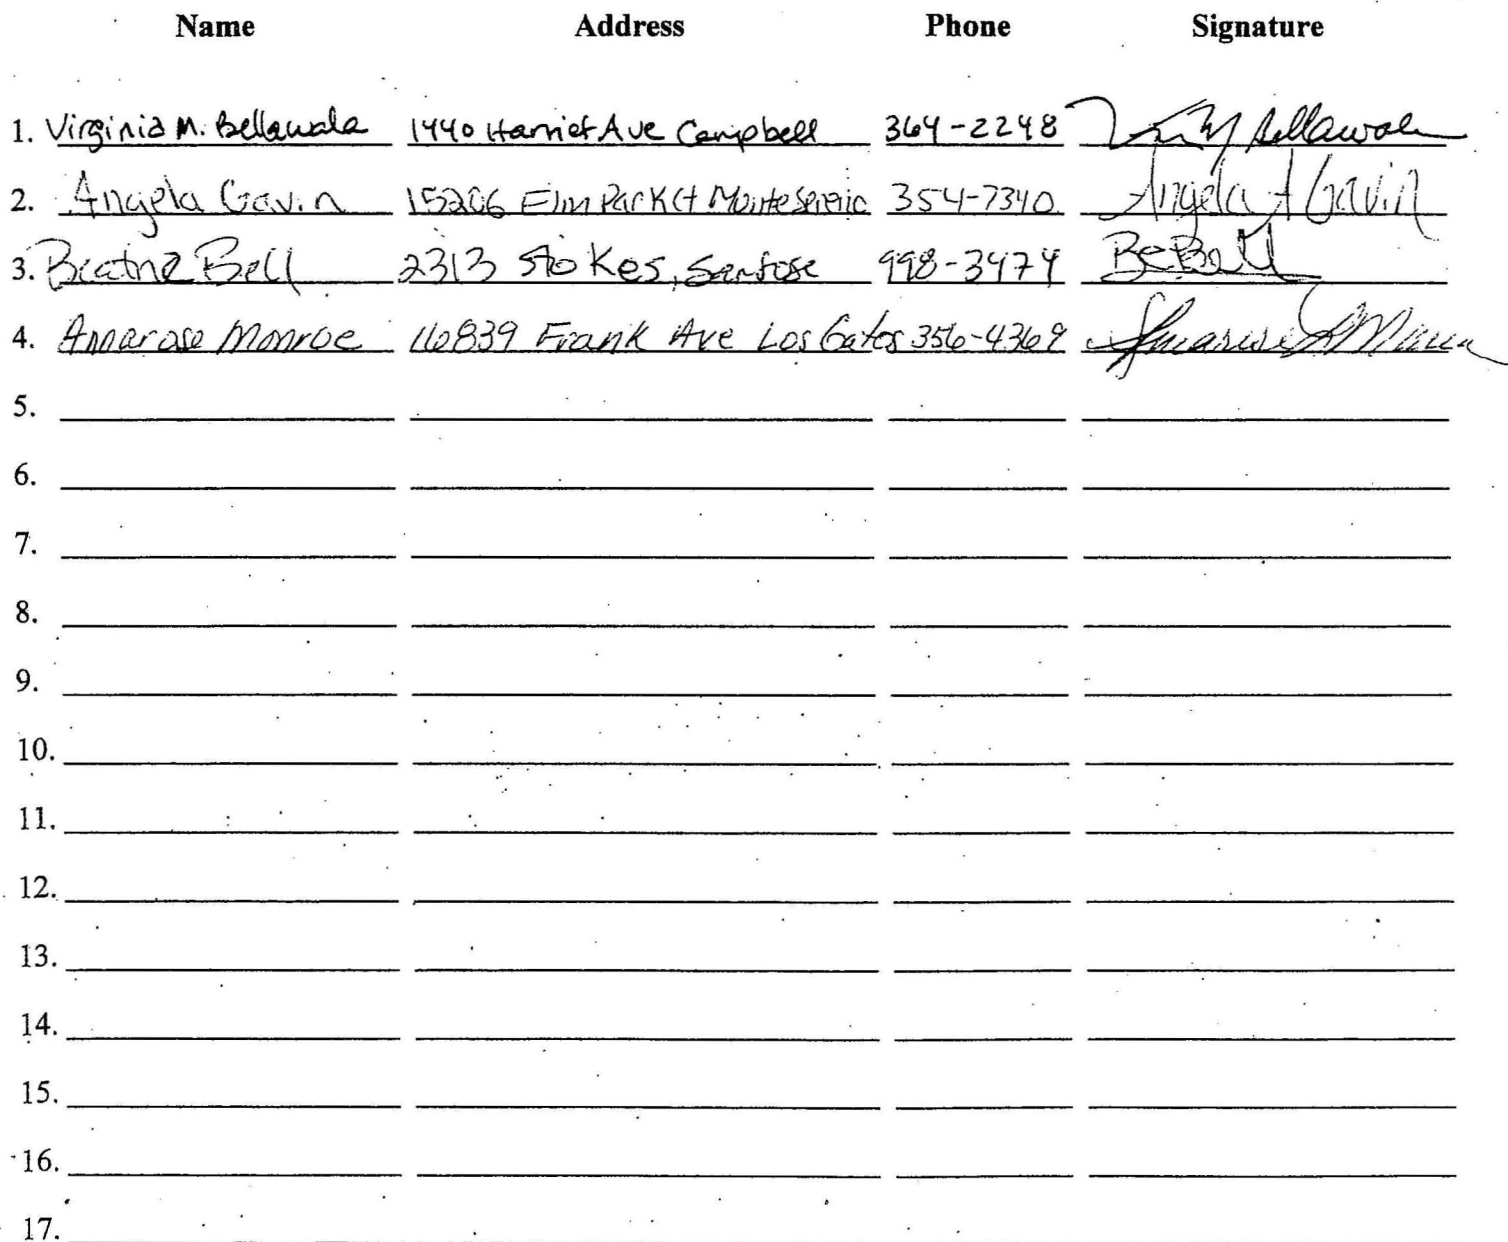 Name Address Phone Signature
1. Virginia M. Bellawala 1440 Harriet Ave Campbell 364-2248
2. Angela Gavin 15206 Elm Park Ct Monte Sereno 354-7340 Angela A Gavin
3. Beatriz Bell 2313 Stokes, San Jose 998-3474 BeBell
4. Annarose Monroe 16839 Frank Ave Los Gatos 356-4369
5.
6.
7.
8.
9.
10.
11.
12.
13.
14.
15.
16.
17.